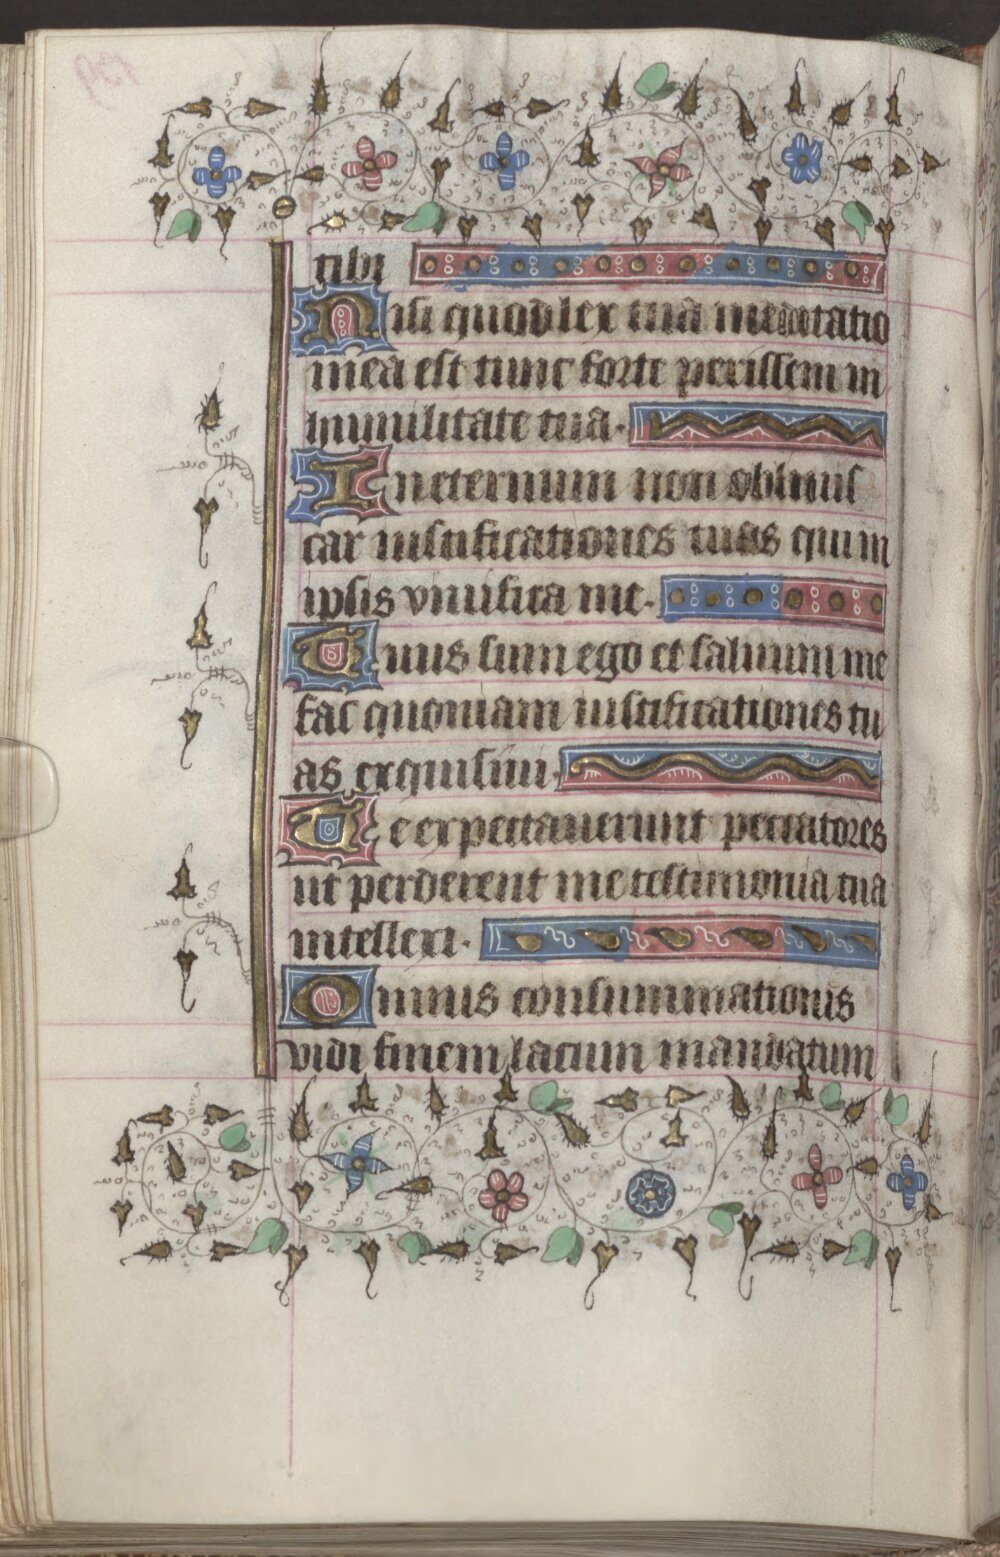 tibi
Nisi quod lex tua meditatio
mea est tunc forte perissem in
humilitate tua.
In eternum non obliuis
car iustificationes tuas qui in
ipsis viuifica me.
Tuus sum ego et saluum me
fac quoniam iustificationes tu
as exquisiui.
Te expectauerunt peccatores
ut perderent me testimonia tua
intellexi.
Omnis consummationis
vidi finem latum mandatum